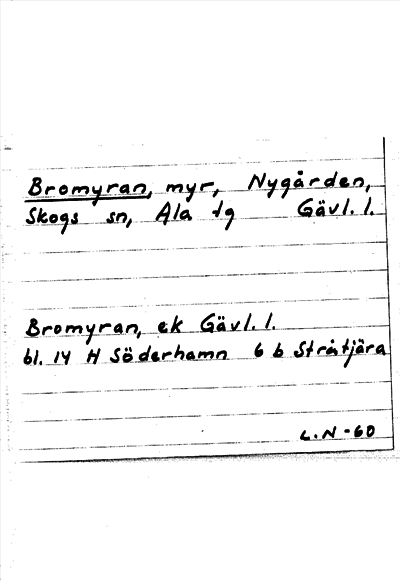 Bromyran, myr, Nygården,
Skogs sn, Ala tg Gävl. l.
Bromyran, ek Gävl. l.
bl. 14 H Söderhamn 6 b Stråtjära
L. N -60